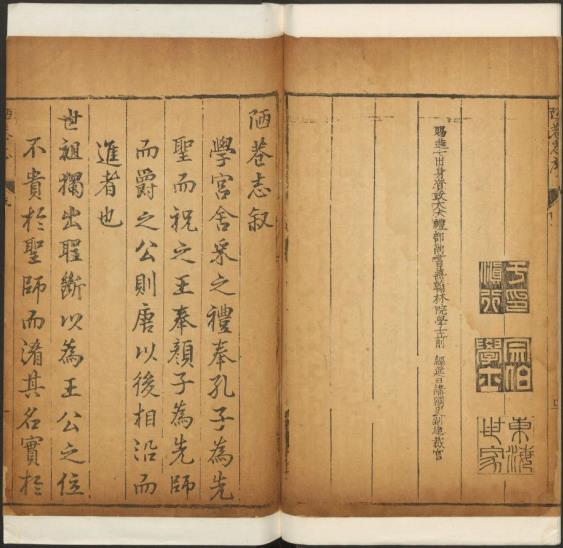 于印慎行
宗伯學士
東海世家
賜進士出身資政大夫禮部尚書兼翰林院學士前 經筵日講國史副總裁官
陋巷志叙
學宮舍采之禮奉孔子為先
聖而祝之王奉顏子為先師
而爵之公則唐以後相沿而
進者也
世祖獨出聖斷以為王公之位
不貴於聖師而淆其名實於